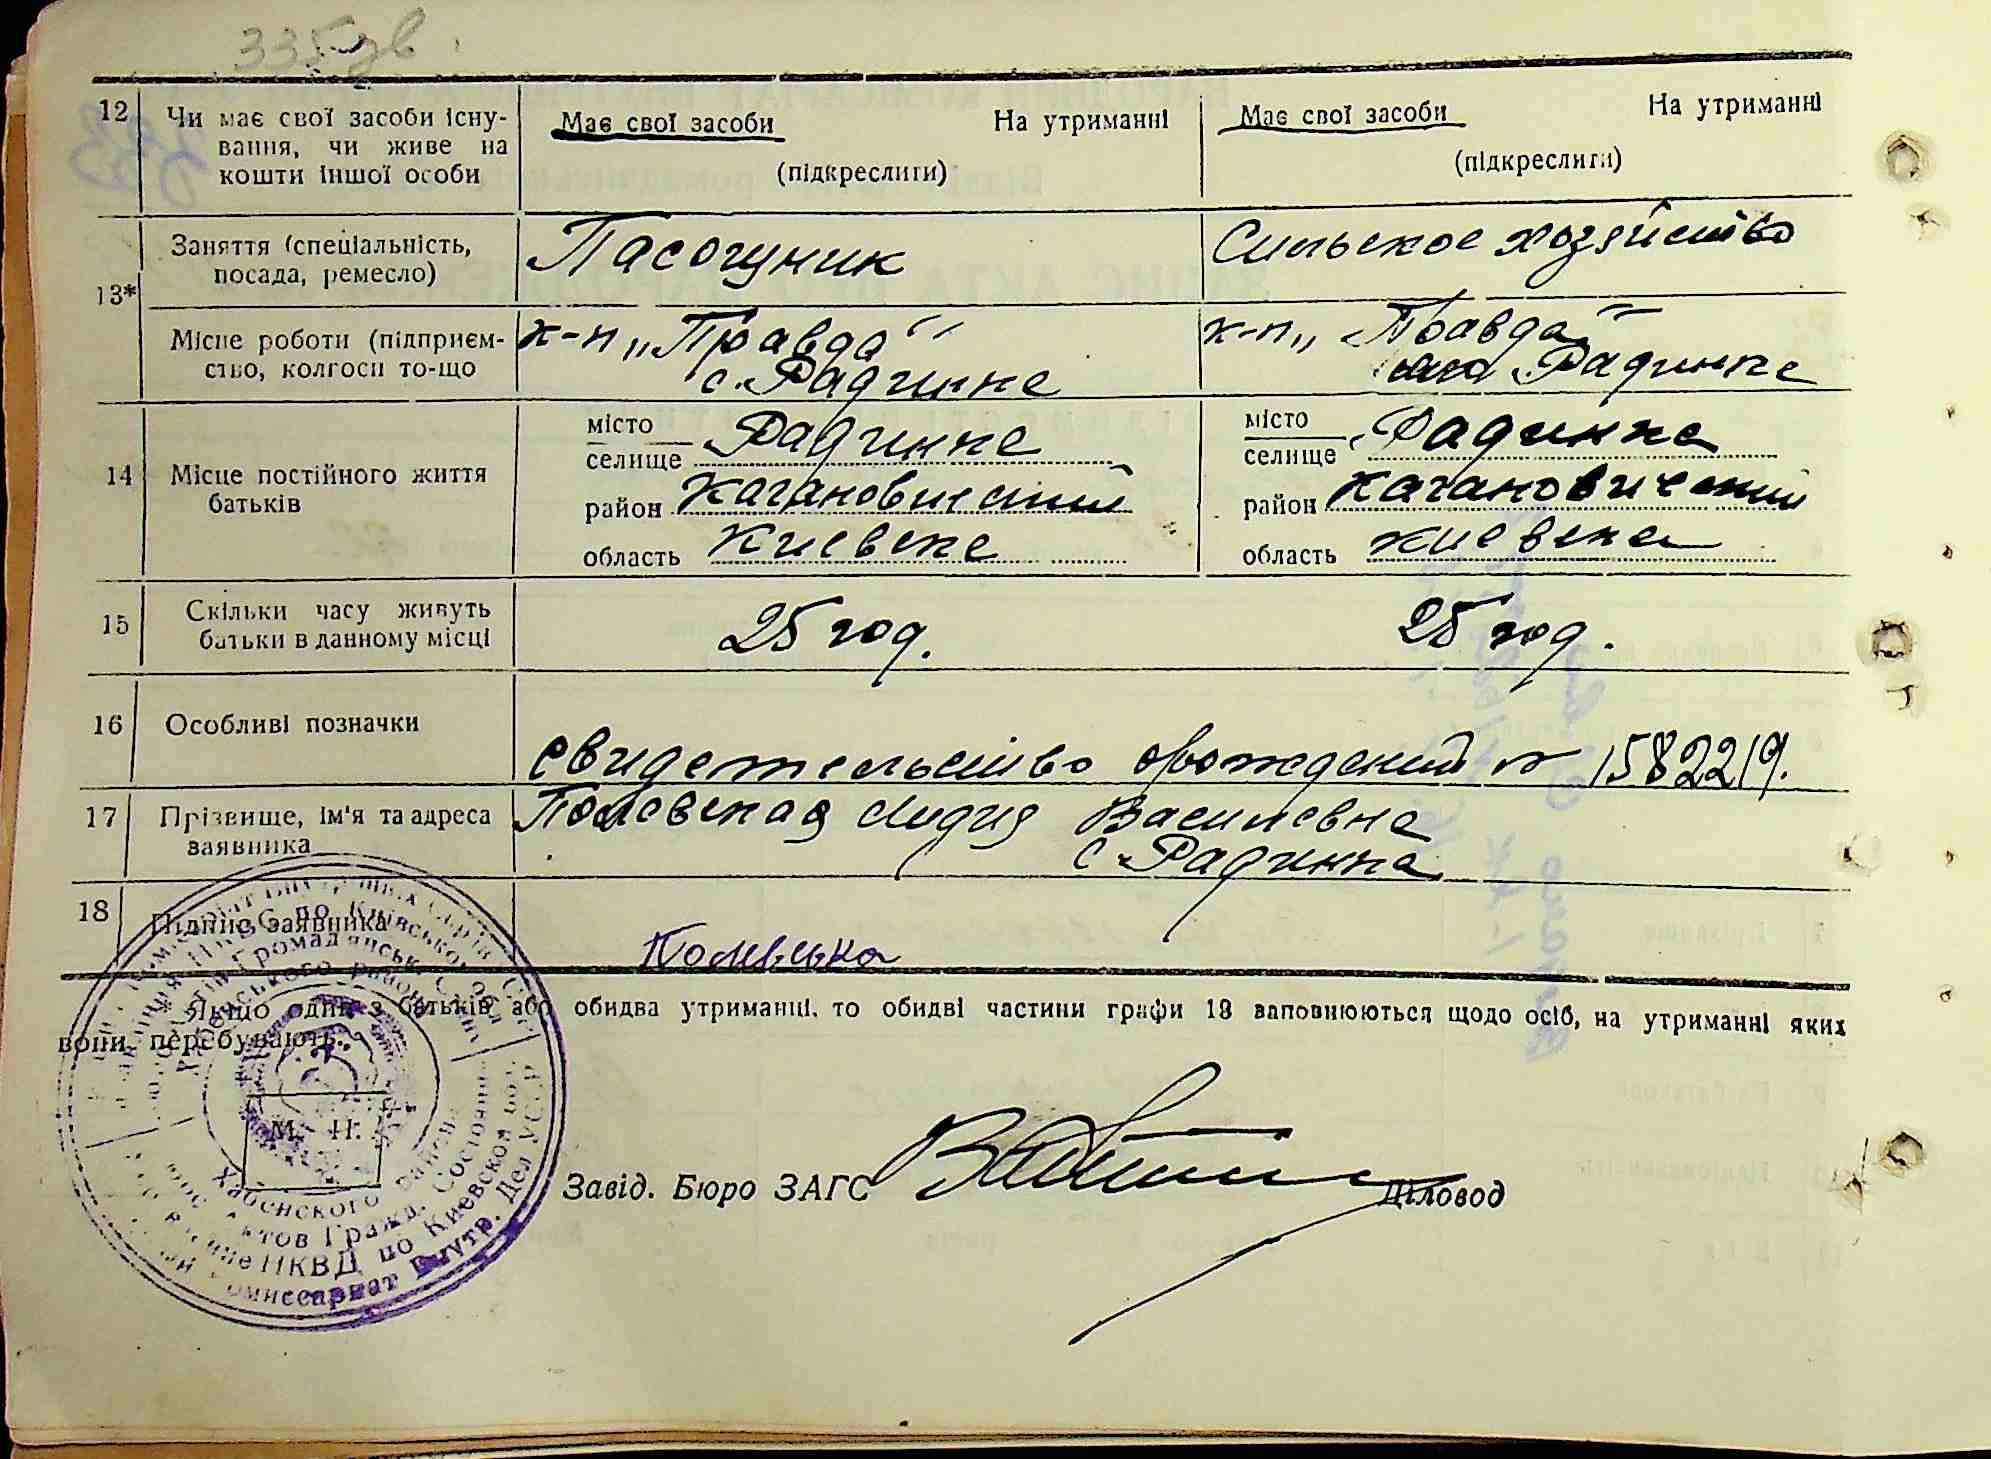 335 зв.
12 Чи має свої засоби існу-
вання, чи живе на
кошти іншої особи
Має свої засоби На утриманні
(підкреслити)
Має свої засоби На утриманні
(підкреслити)
13*
Заняття (спеціальність,
посада, ремесло)
Пасочуник
Сильское хозяйство
Місце роботи (підприєм-
ство, колгосп то-що
к-п „Правда"
с. Радинке
к-п „Правда"
Радинке
14 Місце постійного життя
батьків
місто
селище Радинке
район Кагановичский
область Киевске
місто
селище Радинке
район Кагановичский
область Киевске
15 Скільки часу живуть
батьки в данному місці
25 год.
25 год.
16 Особливі позначки
свидетельство орождений № 1582219.
17 Прізвище, ім'я та адреса
заявника
Полевская Лидия Василевна
с. Радинка
18 Підпис заявника
Полевська
* Якщо один з батьків або обидва утриманні, то обидві частини графи 13 заповнюються щодо осіб, на утриманні яких
вони перебувають.
М. П.
Завід. Бюро ЗАГС
Діловод
Хабенського району
Громадянськ.
НКВС по Київської обл.
Хабенского района
Актов Гражд. Состояния
НКВД по Киевской обл.
Комиссариат Внутр. Дел УССР